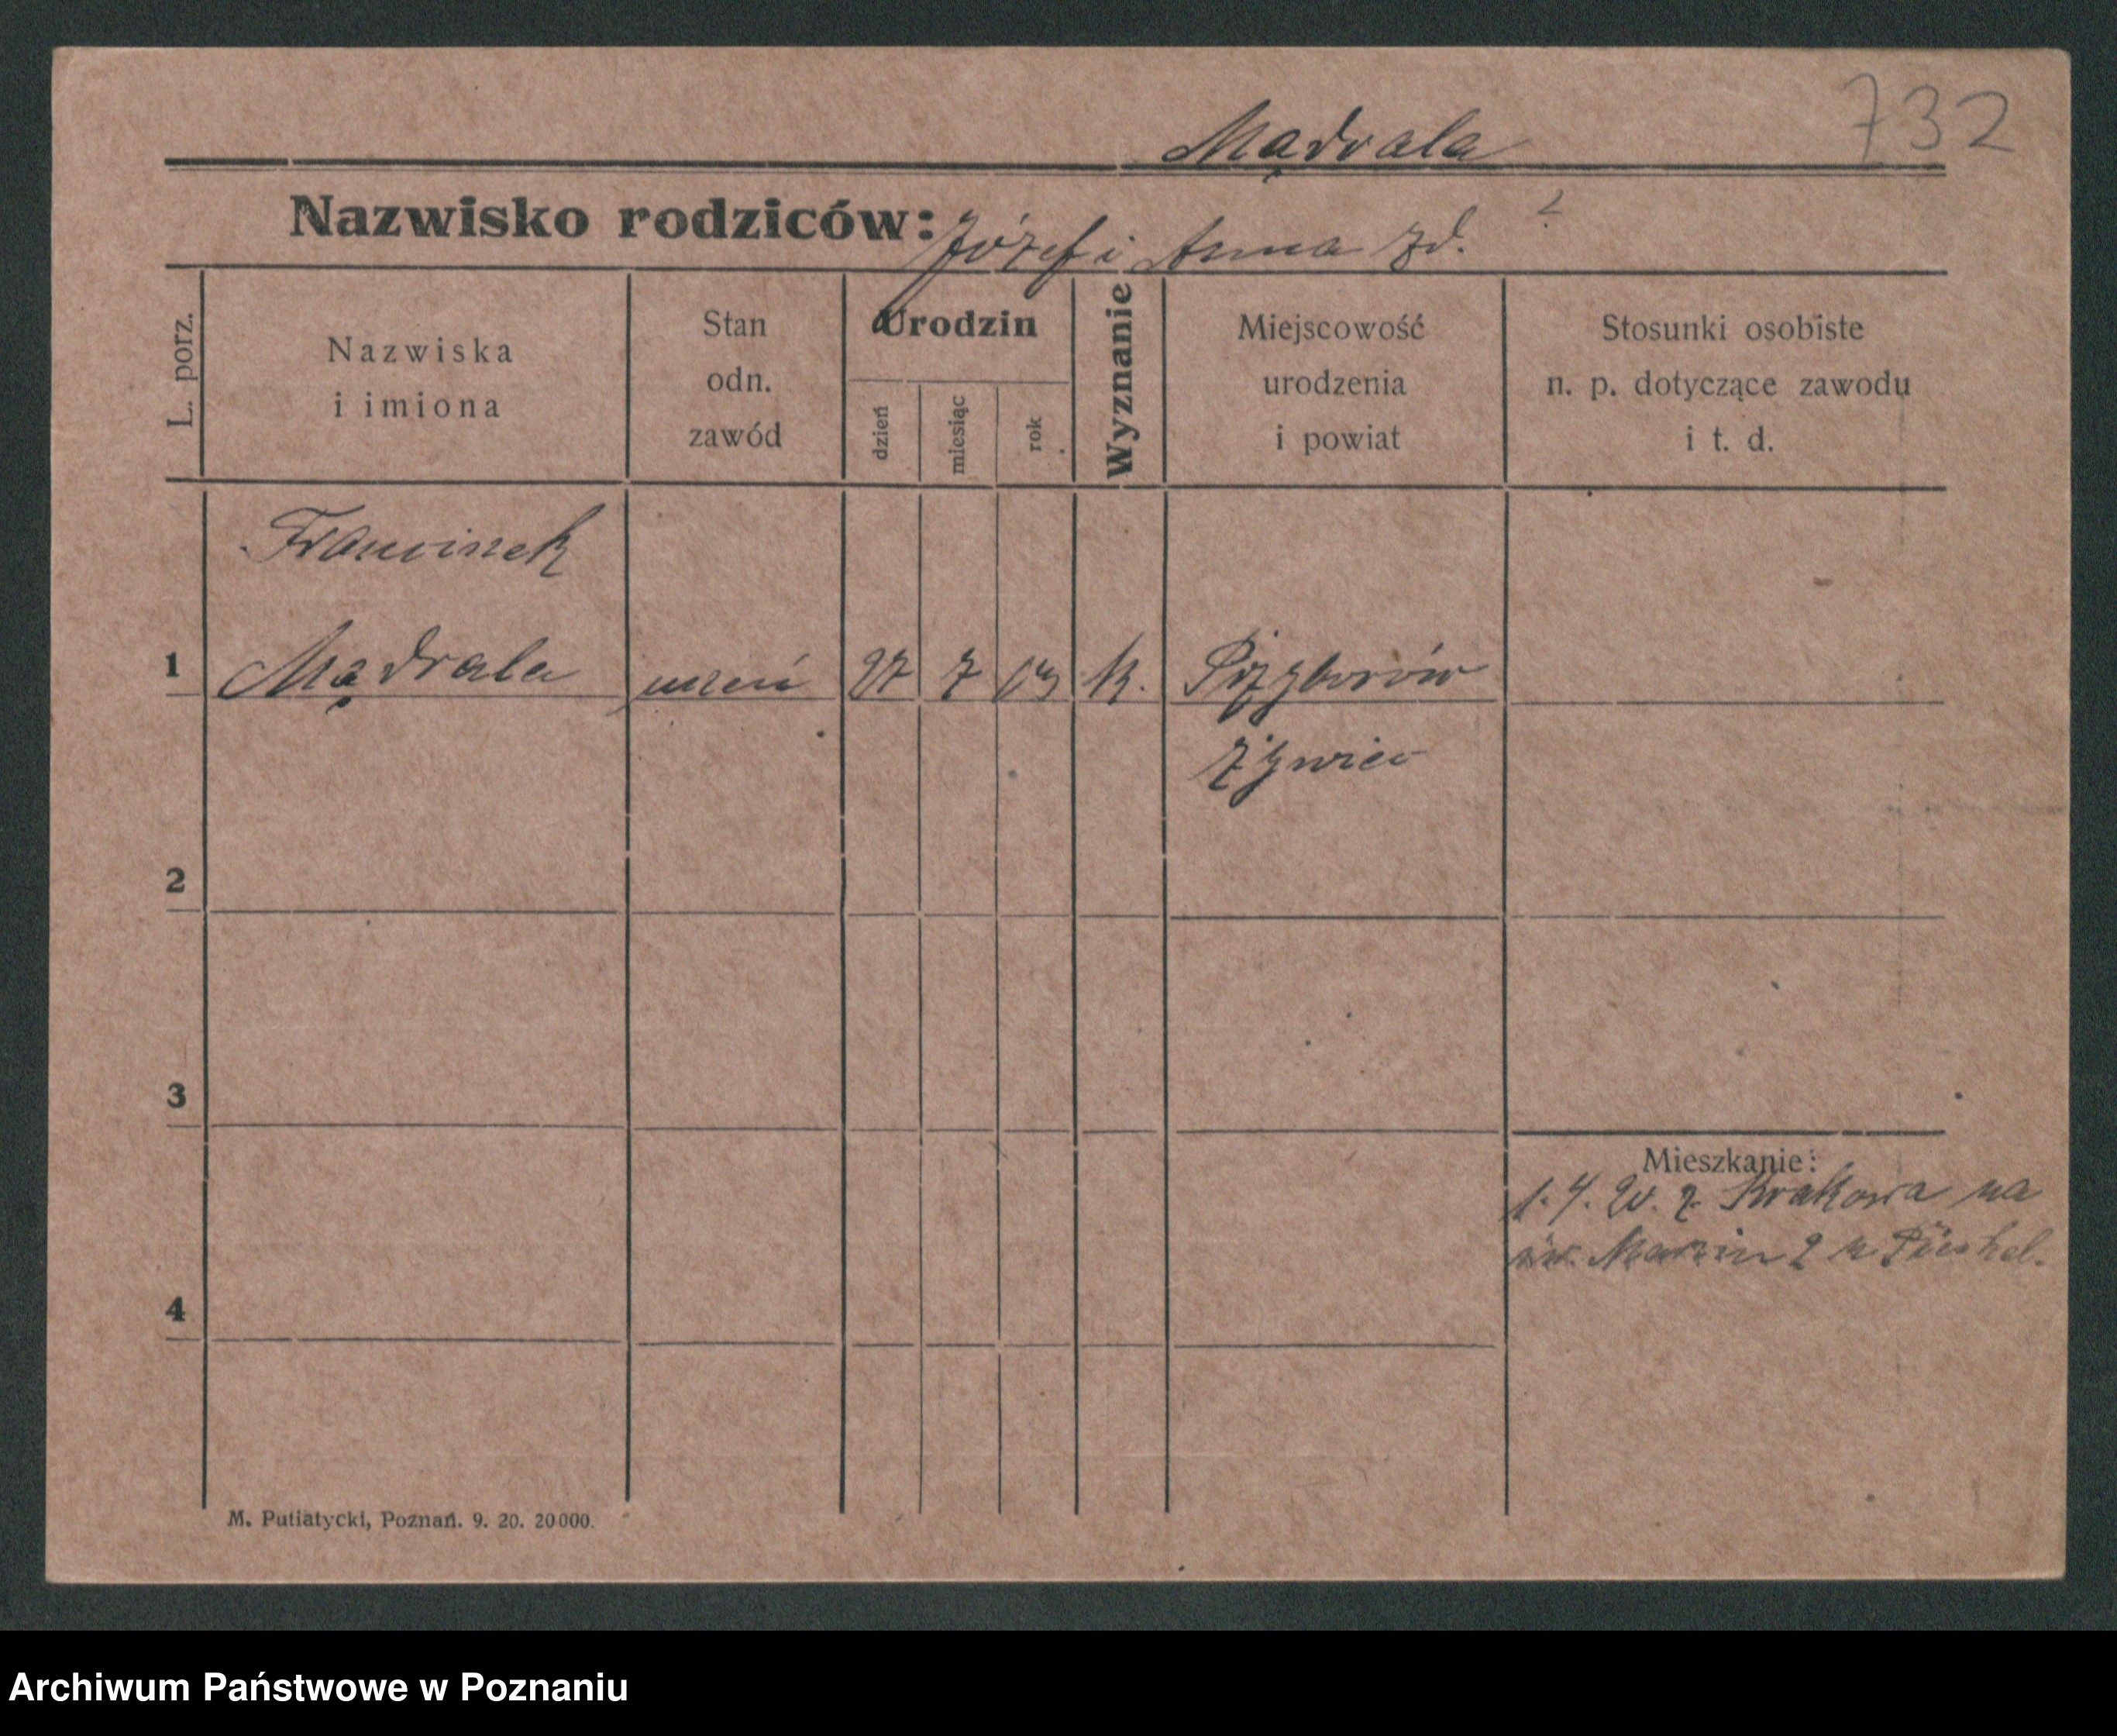 732
Mądrala
Nazwisko rodziców: Józef i Anna zd. ?
L. porz.
Nazwiska
i imiona
Stan
odn.
zawód
Urodzin
dzień
miesiąc
rok
Wyznanie
Miejscowość
urodzenia
i powiat
Stosunki osobiste
n. p. dotyczące zawodu
i t. d.
Franciszek
1 Mądrala uczeń 27 7 03 k. Przyborów
Żywiec
2
3
Mieszkanie:
1. 4. 20. z Krakowa na
św. Marcin 2 u
4
M. Putiatycki, Poznań. 9. 20. 20000.
Archiwum Państwowe w Poznaniu